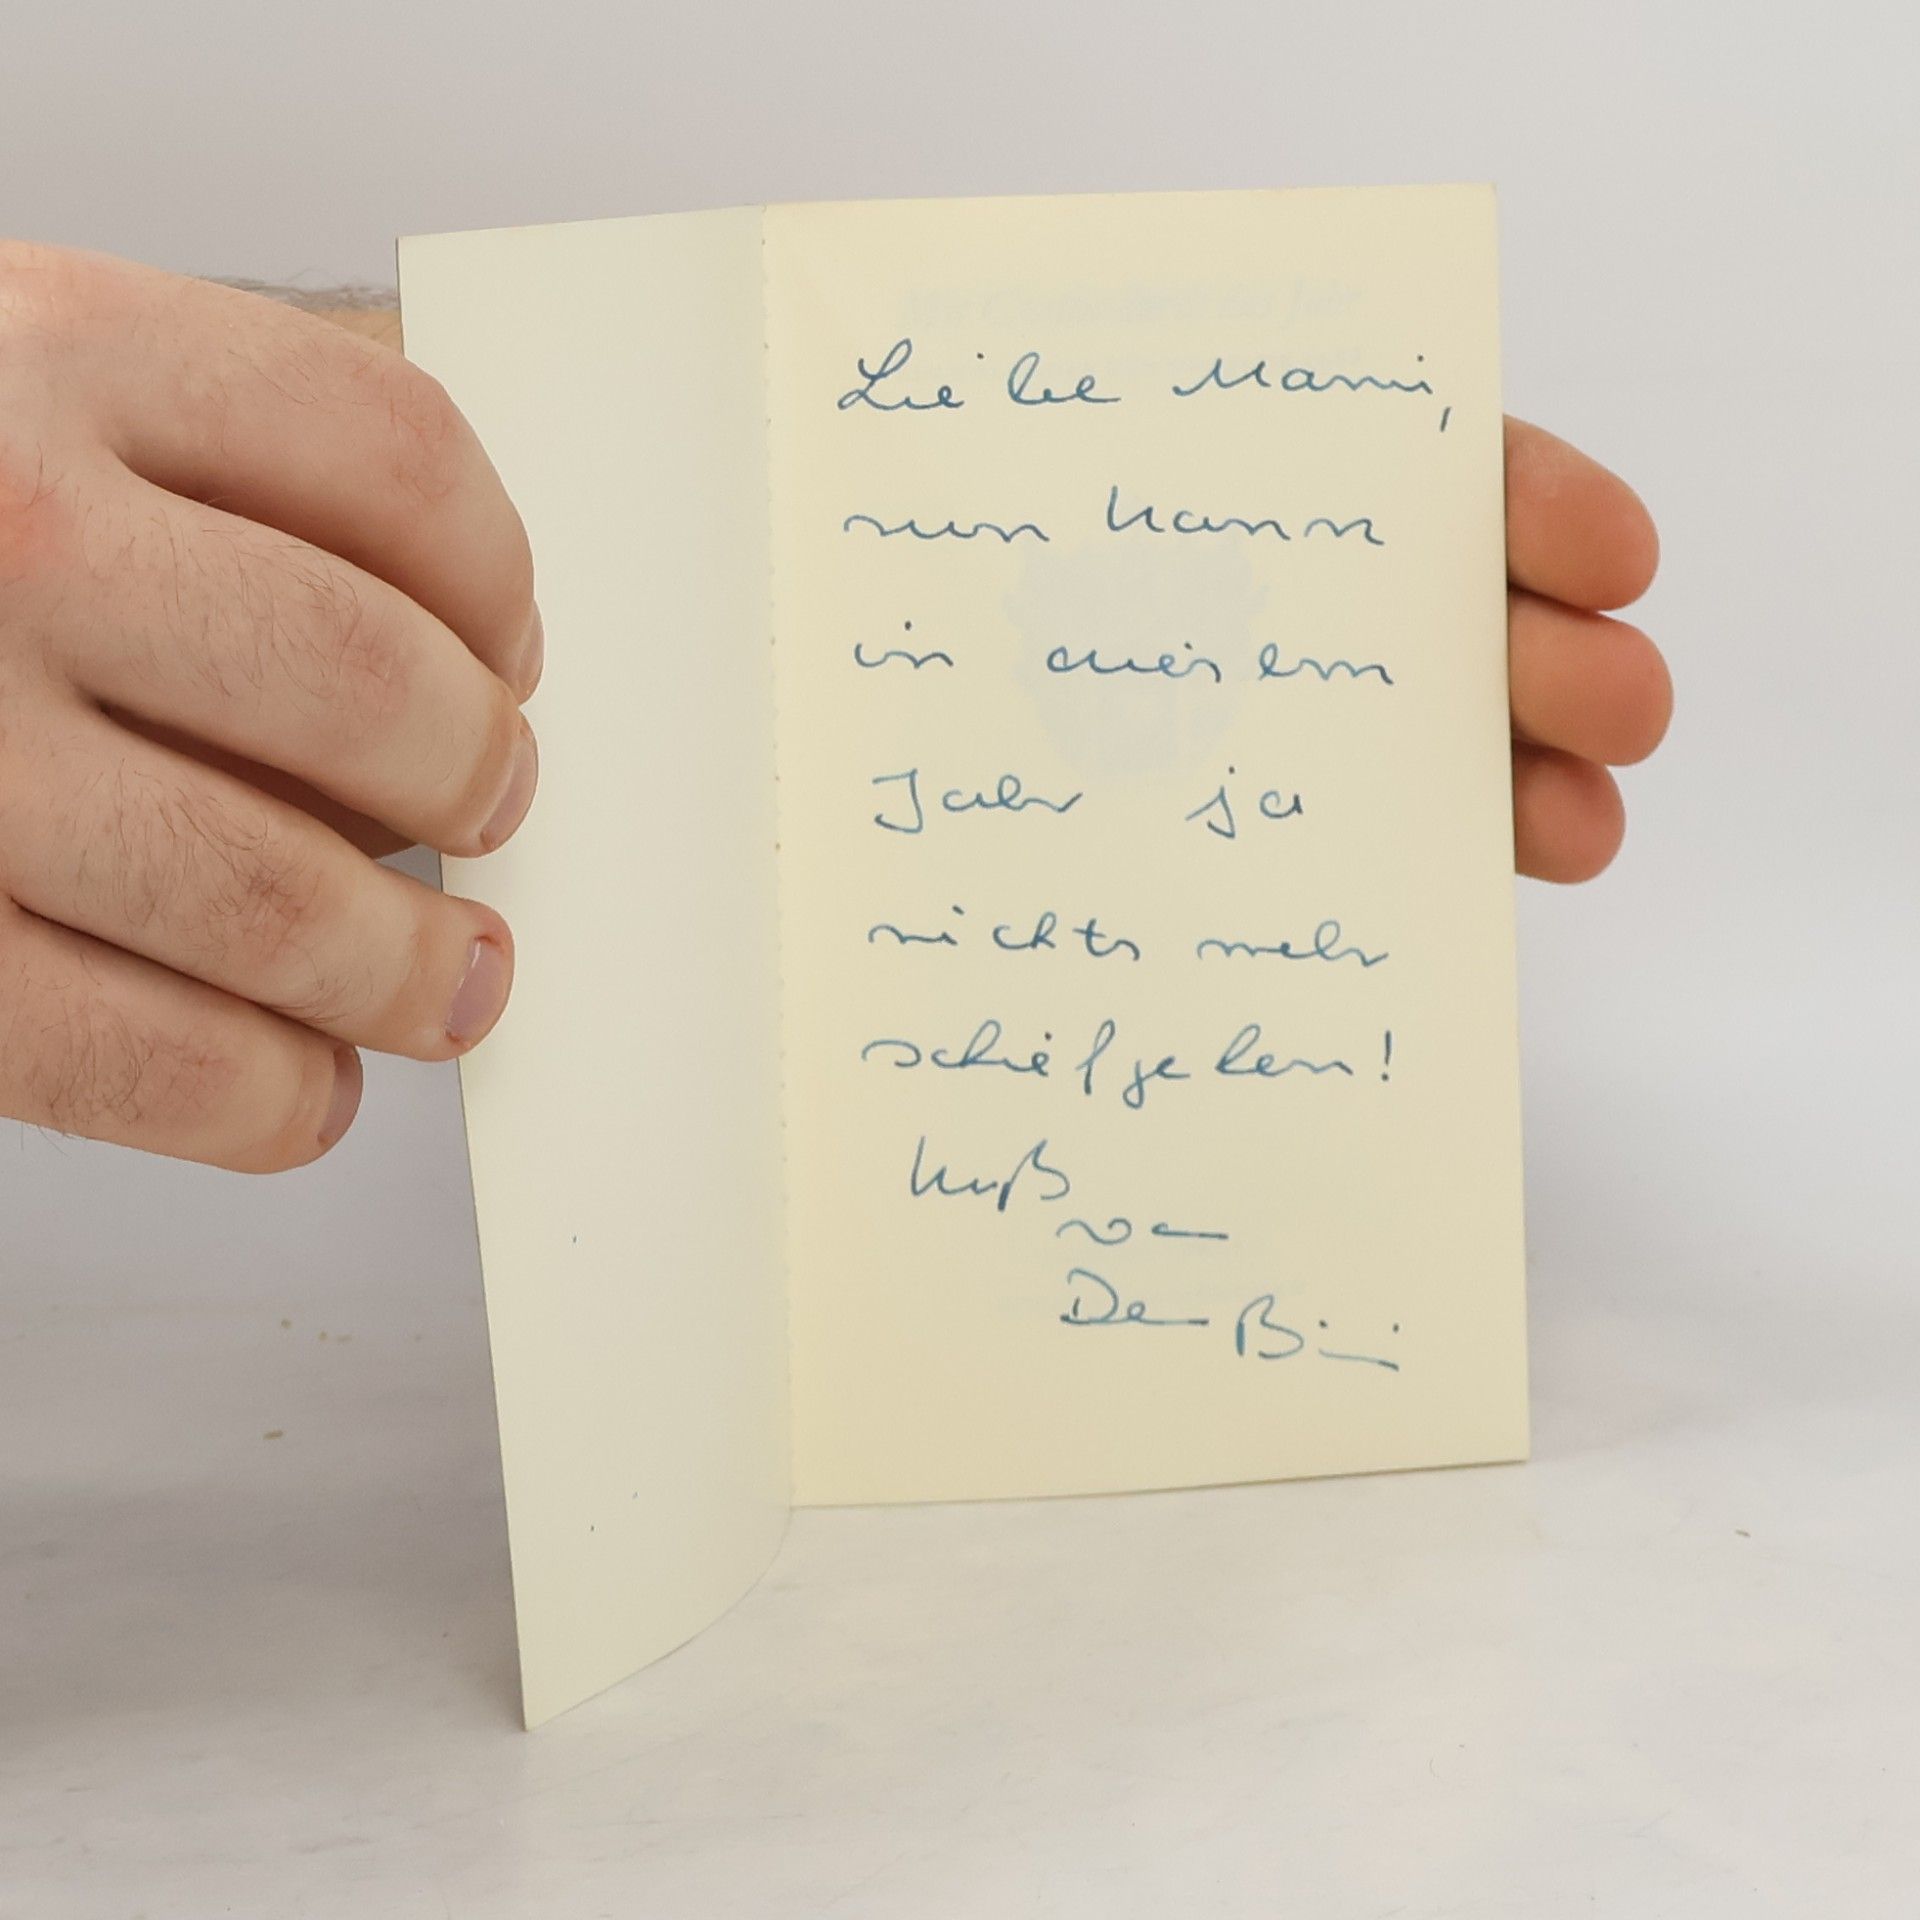 Liebe Mami,
nun kann
in diesem
Jahr ja
nichts mehr
schiefgehen!
Kuß
von
Bi